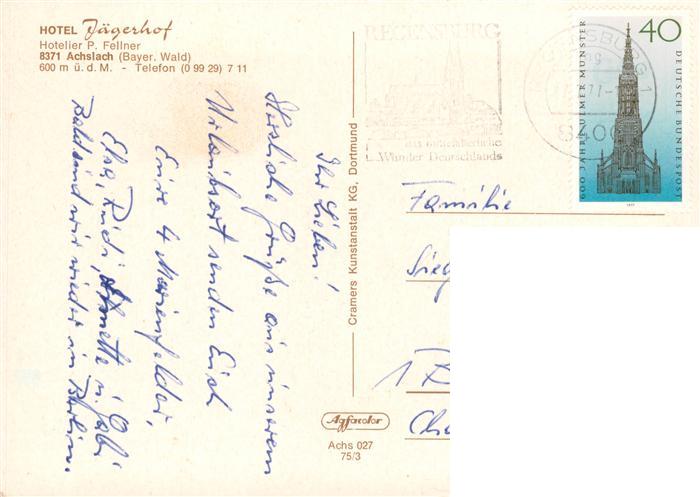 HOTEL Jägerhof
Hotelier P. Fellner
8371 Achslach (Bayer. Wald)
600 m ü. d. M. - Telefon (0 99 29) 7 11
Ihr Lieben!
Herzliche Grüße aus unserem
Urlaubsort senden Euch
Eure 4 Marienfelder,
Elka, Rudi, Annette u. Gabi
Bald sind wir wieder in Berlin.
Cramers Kunstanstalt KG, Dortmund
Agfacolor
Achs 027
75/3
REGENSBURG
das mittelalterliche
Wunder Deutschlands
8400
40
600 JAHRE ULMER MÜNSTER
DEUTSCHE BUNDESPOST
1977
Familie
Sieg
1 B